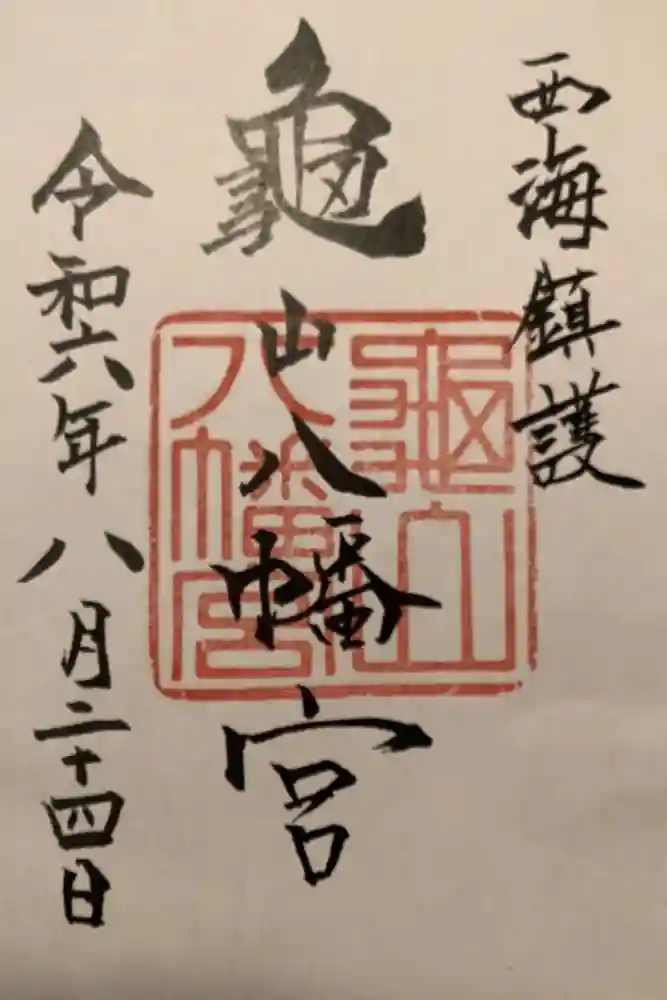 西海鎮護
龜山八幡宮
龜山八幡宮
令和六年八月二十四日